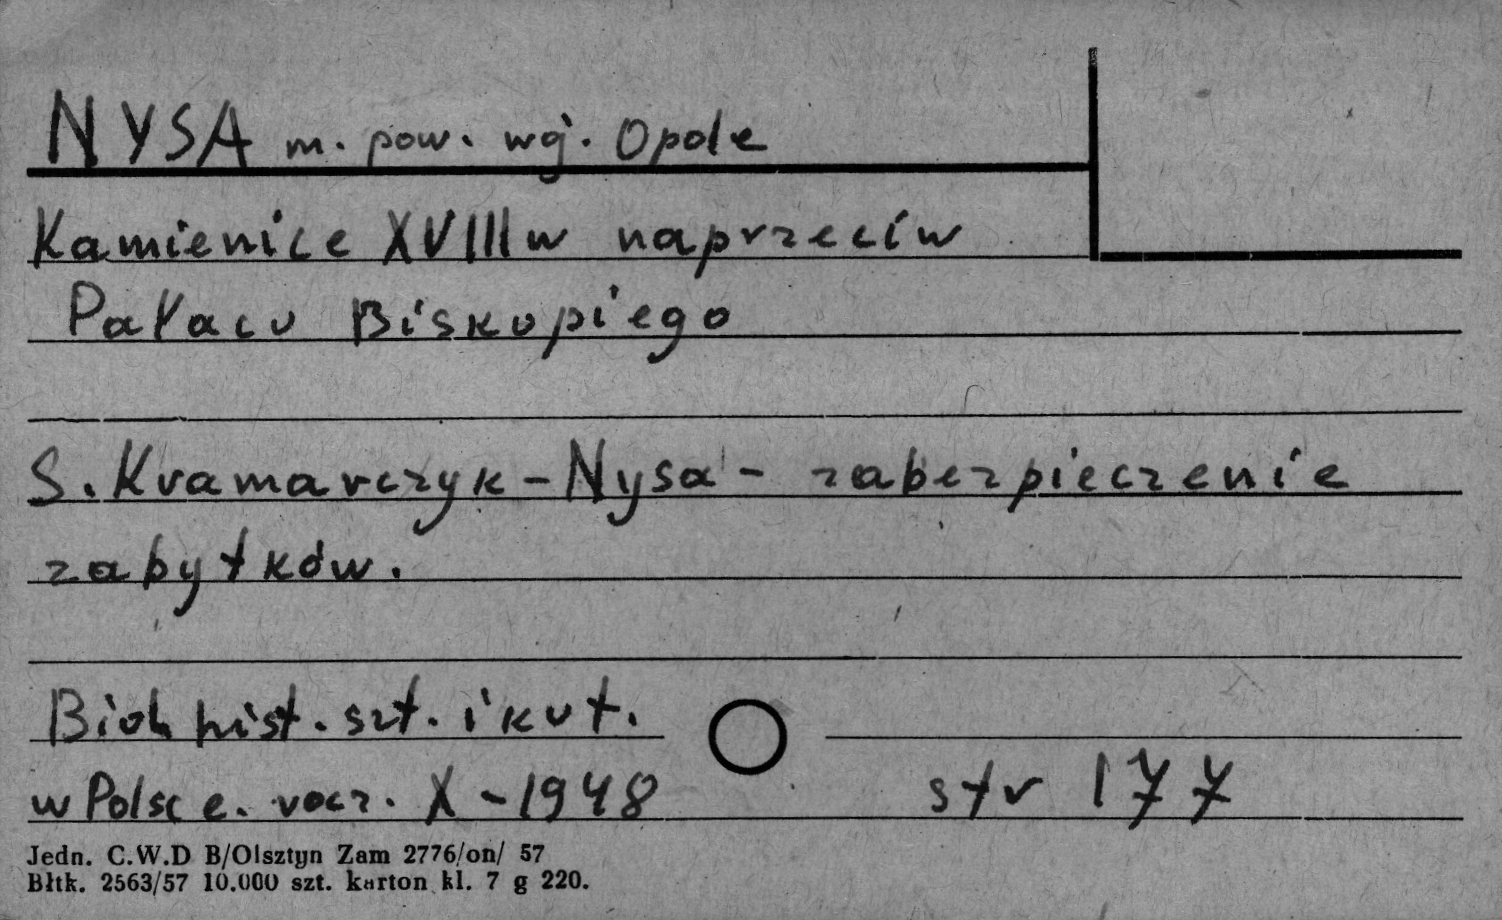 NYSA m. pow. woj. Opole
Kamienice XVIII w naprzeciw
Pałacu Biskupiego
S. Kramarczyk - Nysa - zabezpieczenie
zabytków.
hist. szt. i kut.
w Polsce. rocz. X - 1948 str 177
Jedn. C.W.D B/Olsztyn Zam 2776/on/ 57
Błtk. 2563/57 10.000 szt. karton kl. 7 g 220.